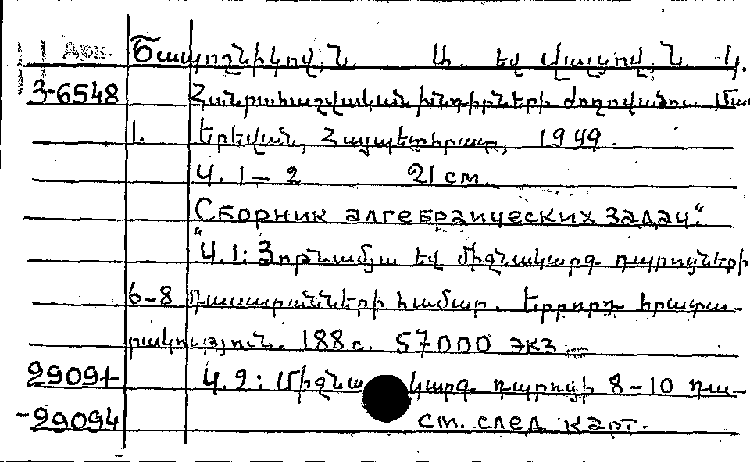 Арм. Շապոշնիկով, Ն. Ա. եվ Վալցով, Ն. Կ.
3-6548 Հանրահաշվական խնդիրների ժողովածու. Մաս
I. Երեվան, Հայպետհրատ, 1949.
Ч. 1 – 2 21 cm.
"Сборник алгебраических задач."
Ч. 1: Յոթնամյա եվ միջնակարգ դպրոցների
6-8 դասարանների համար. Երրորդ հրատա-
րակություն. 188 с. 57000 экз.
29091- Ч. 2: Միջնակարգ դպրոցի 8-10 դա-
-29094 см. след карт.